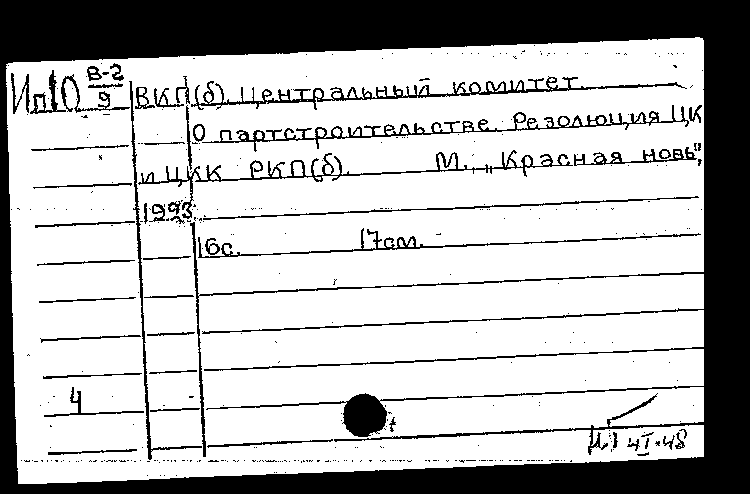 Ип10 В-2/9
ВКП(б). Центральный комитет.
О партстроительстве. Резолюция ЦК
и ЦКК РКП(б). М., „Красная новь",
1993.
16с. 17см.
4
4/I-48